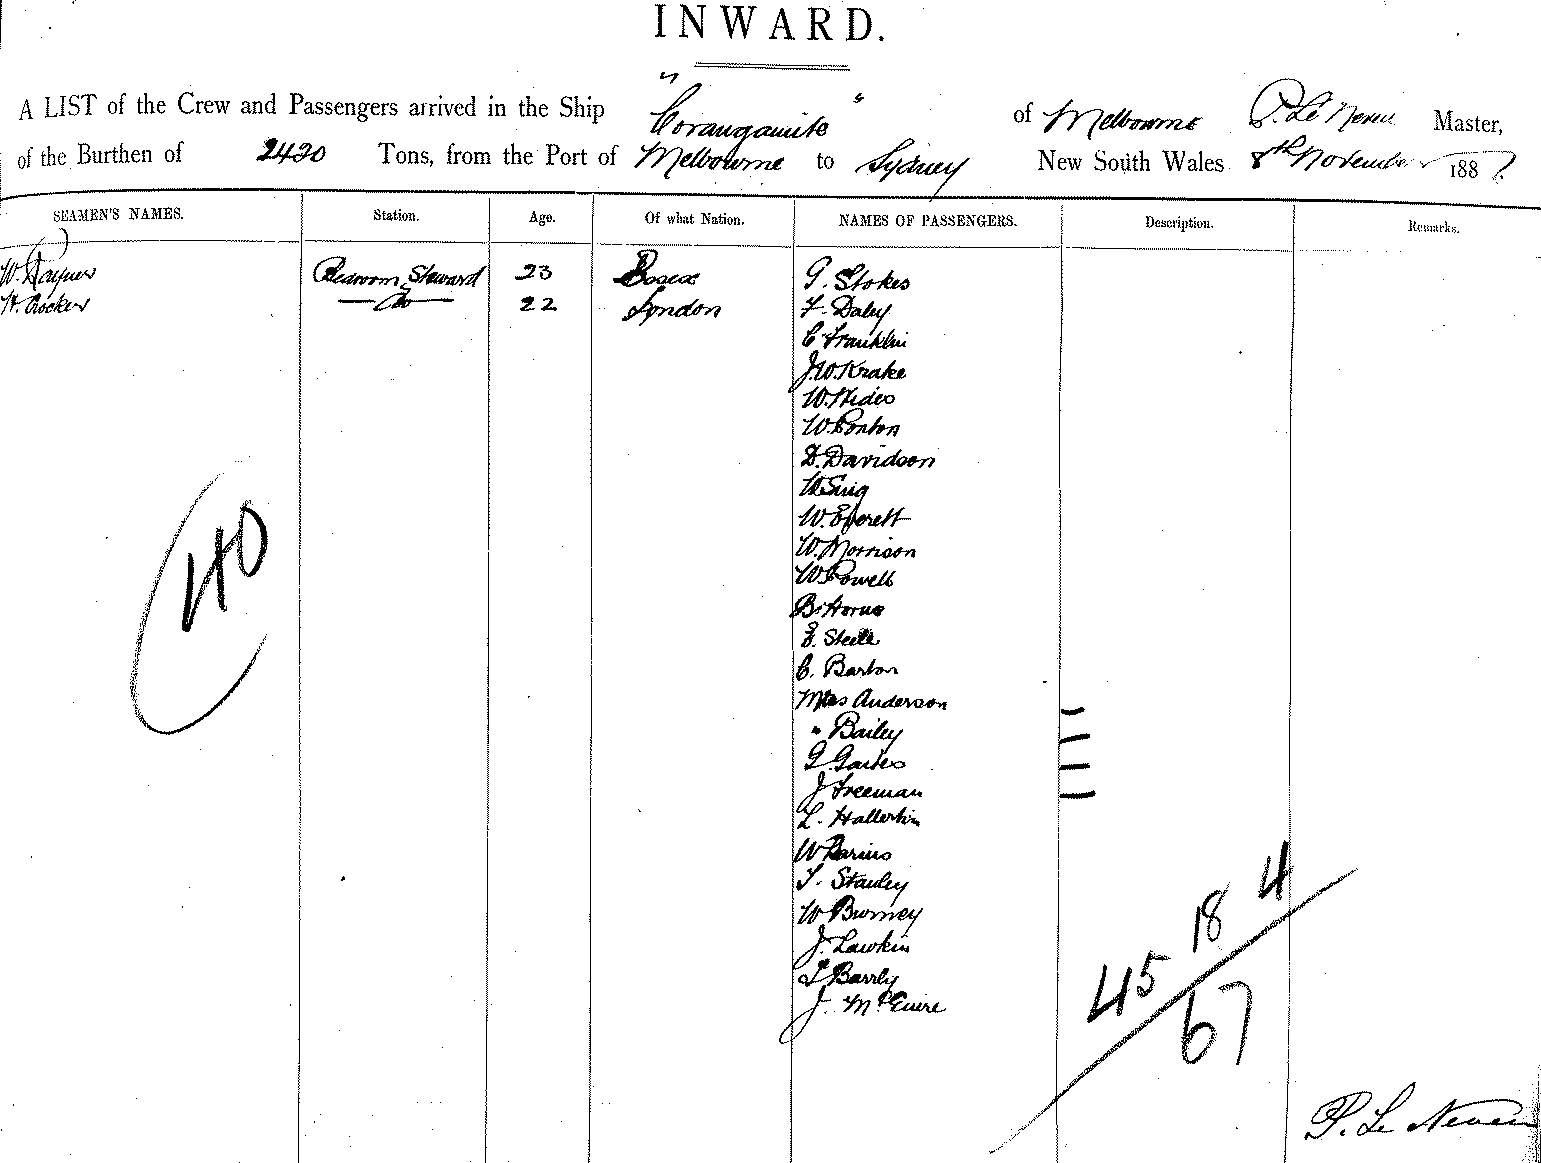 INWARD.
A LIST of the Crew and Passengers arrived in the Ship "Corangamite" of Melbourne P. Le Neveu Master,
of the Burthen of 2420 Tons, from the Port of Melbourne to Sydney New South Wales 8th November 1887
SEAMEN'S NAMES. Station. Age. Of what Nation. NAMES OF PASSENGERS. Description. Remarks.
W. Bedroom Steward 23 Essex G. Stokes
H. Crocker do 22 London F. Daley
C Franklin
J.W. Krake
W. Hides
W. Ponton
D. Davidson
W.
W. Everett
W. Morrison
W. Powell
B. Horne
E. Steele
C. Barton
Mrs Anderson
" Bailey
G.
J Freeman
L.
W
T. Stanley
W Burney
J. Lawkin
Barrly
J. McGuire
40
45 18 4
67
P. Le Neveu